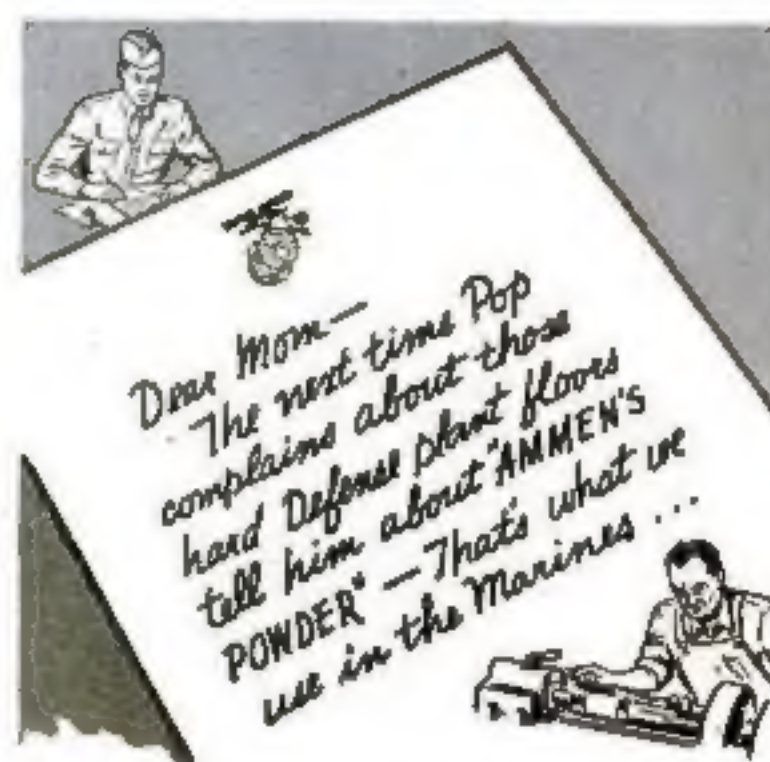 Dear Mom—
The next time Pop
complains about those
hard Defense plant floors
tell him about "AMMEN'S
POWDER" — That's what we
use in the Marines ...